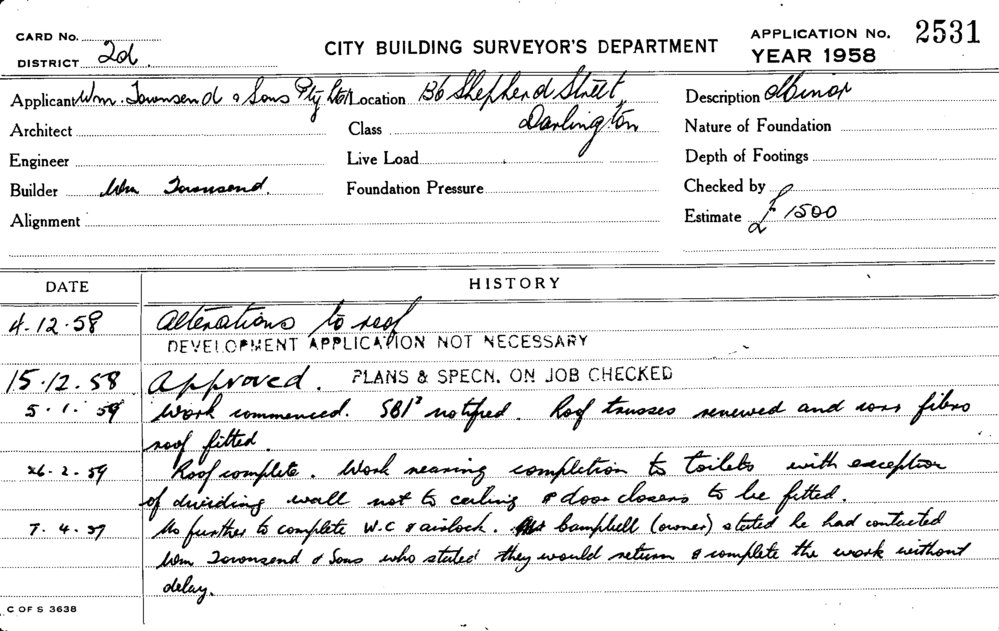 CARD No.
DISTRICT 2d.
CITY BUILDING SURVEYOR'S DEPARTMENT
APPLICATION No. 2531
YEAR 1958
Applicant Wm. Townsend & Sons Pty Ltd Location 136 Shepherd Street, Description Minor
Architect Class Darlington Nature of Foundation
Engineer Live Load Depth of Footings
Builder Wm Townsend. Foundation Pressure Checked by
Alignment Estimate £1500
DATE HISTORY
4.12.58 Alterations to roof
DEVELOPMENT APPLICATION NOT NECESSARY
15.12.58 Approved. PLANS & SPECN. ON JOB CHECKED
5.1.59 Work commenced. notified. Roof trusses renewed and fibro
roof fitted.
26.2.59 Roof complete. Work nearing completion to toilets with exception
of dividing wall not to ceiling & door closers to be fitted.
7.4.59 No further to complete W.C & airlock. Campbell (owner) stated he had contacted
Wm Townsend & Sons who stated they would return & complete the work without
delay.
C OF S 3638